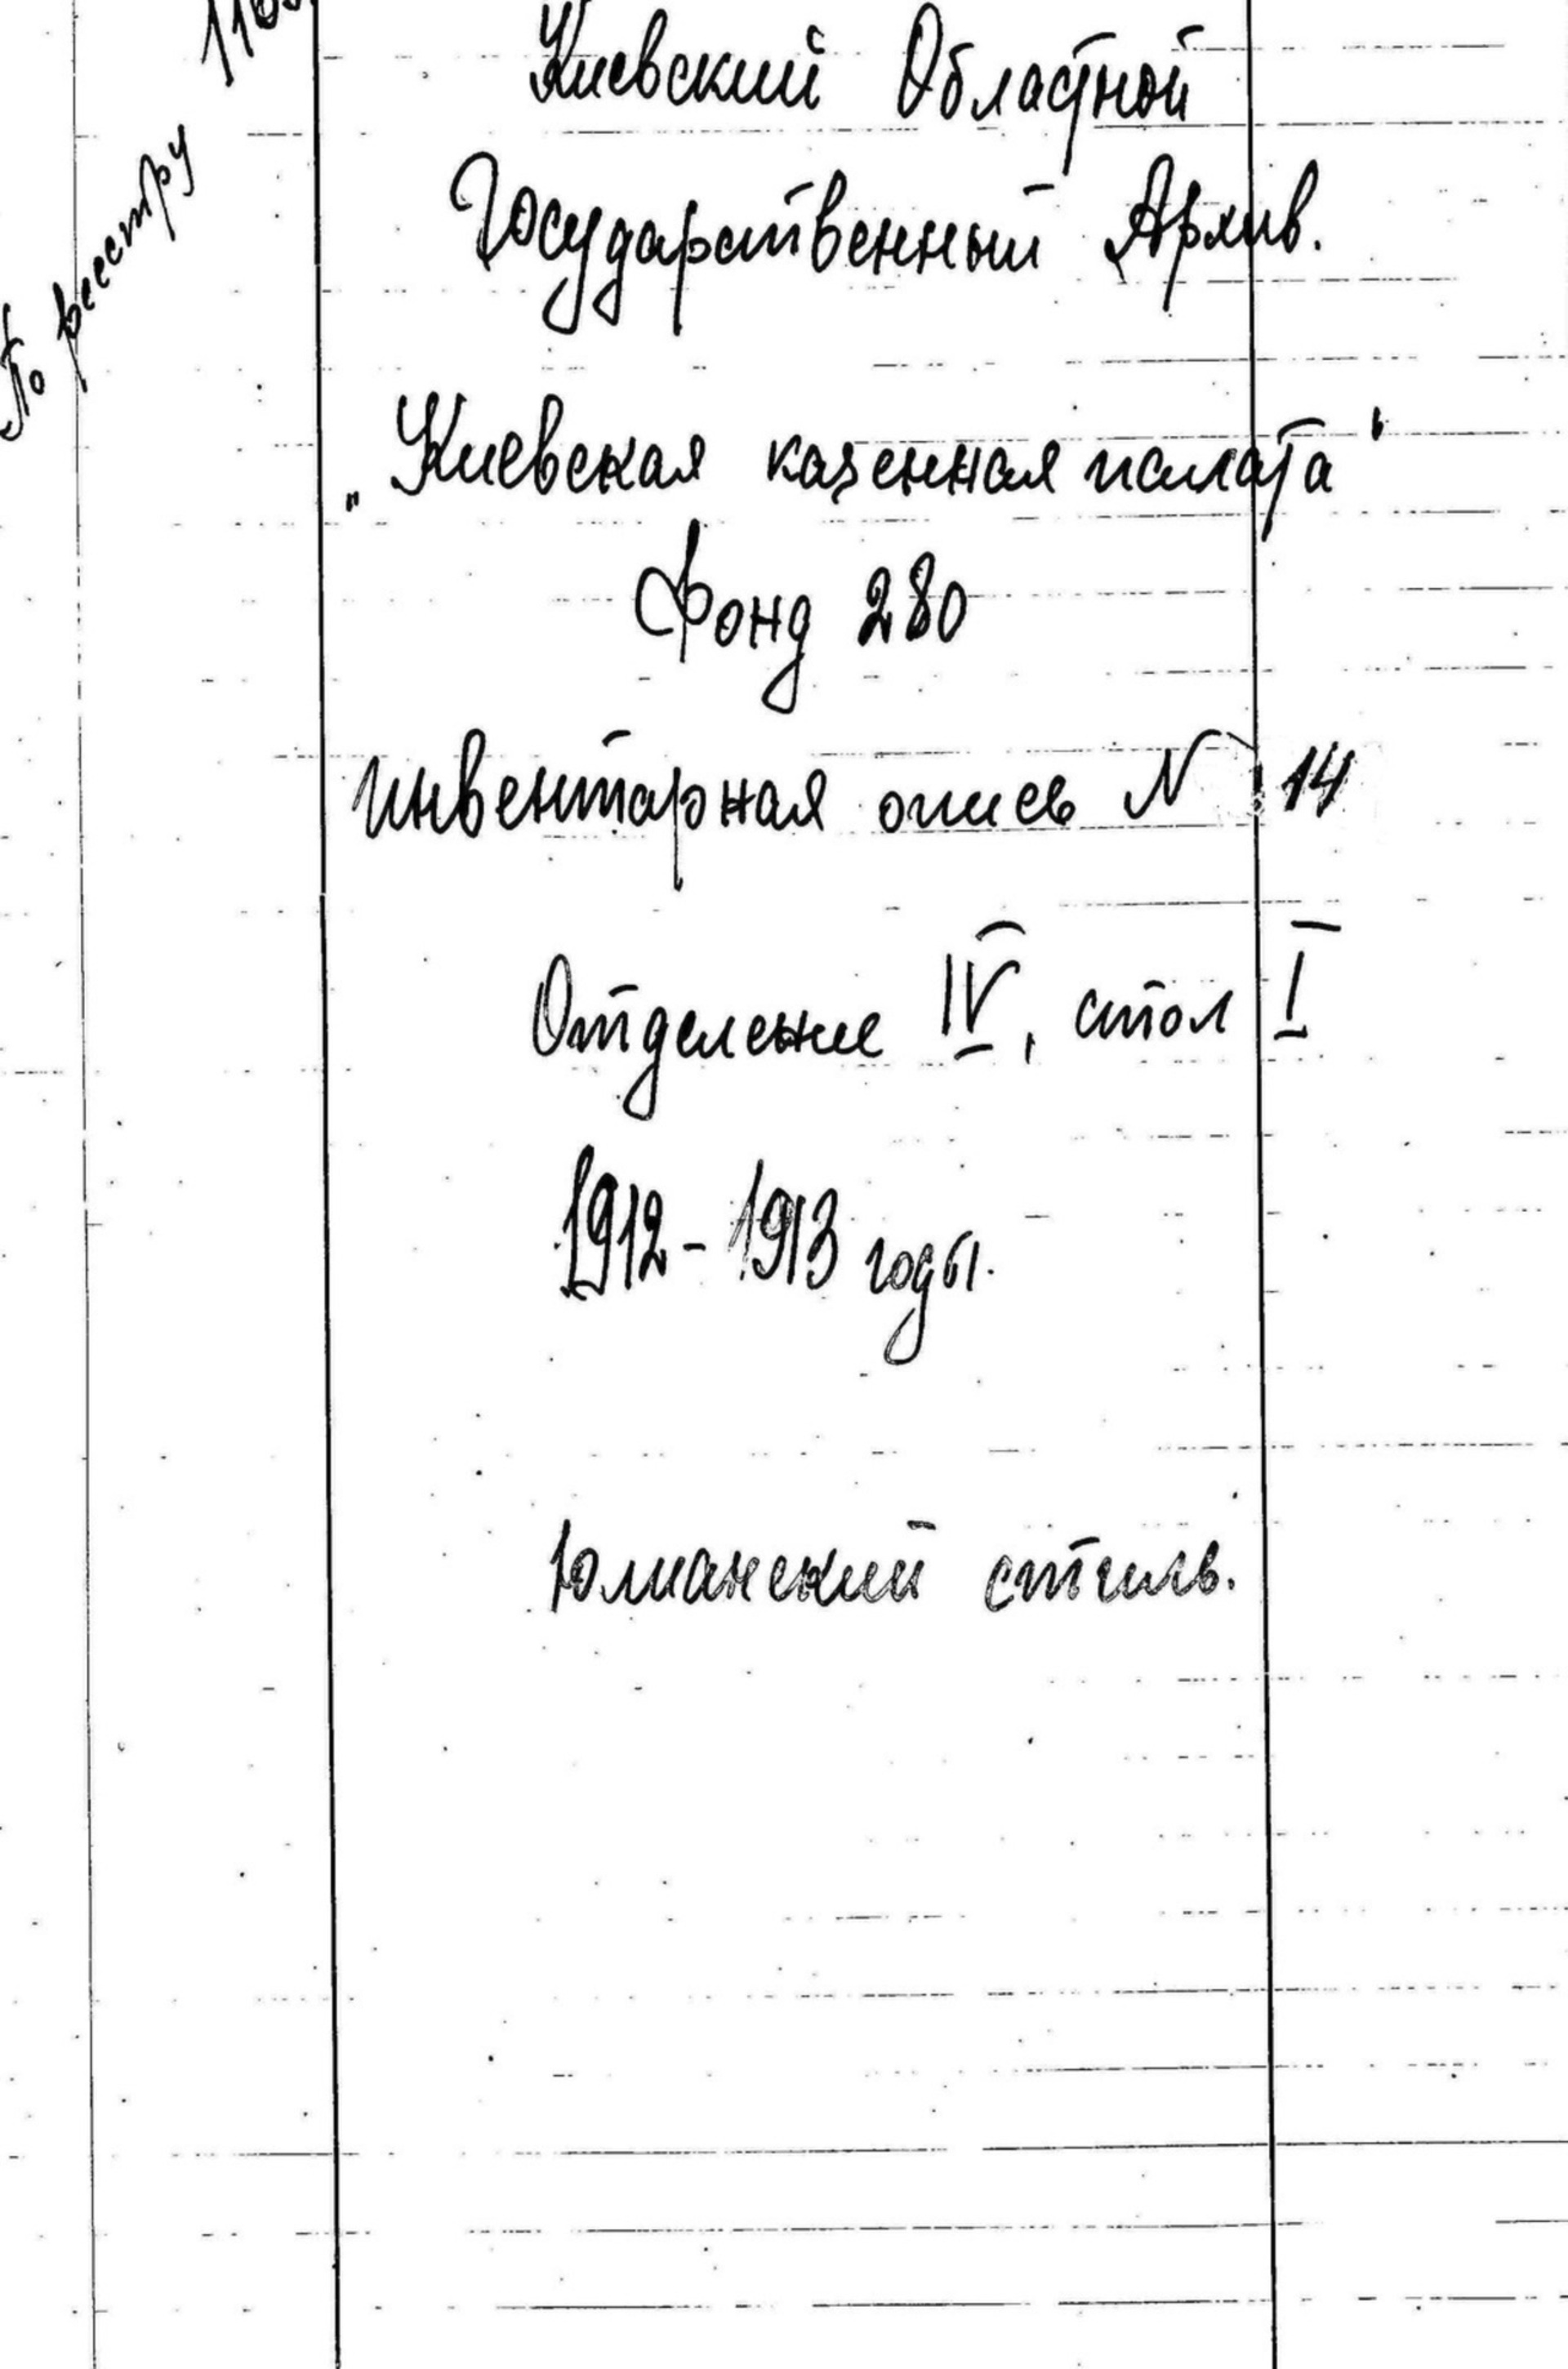 По реестру
Киевский Областной
Государственный Архив.
„Киевская казенная палата"
Фонд 280
Инвентарная опись N 14
Отделение IV, стол I
1912-1913 годы.
Юлианский стиль.